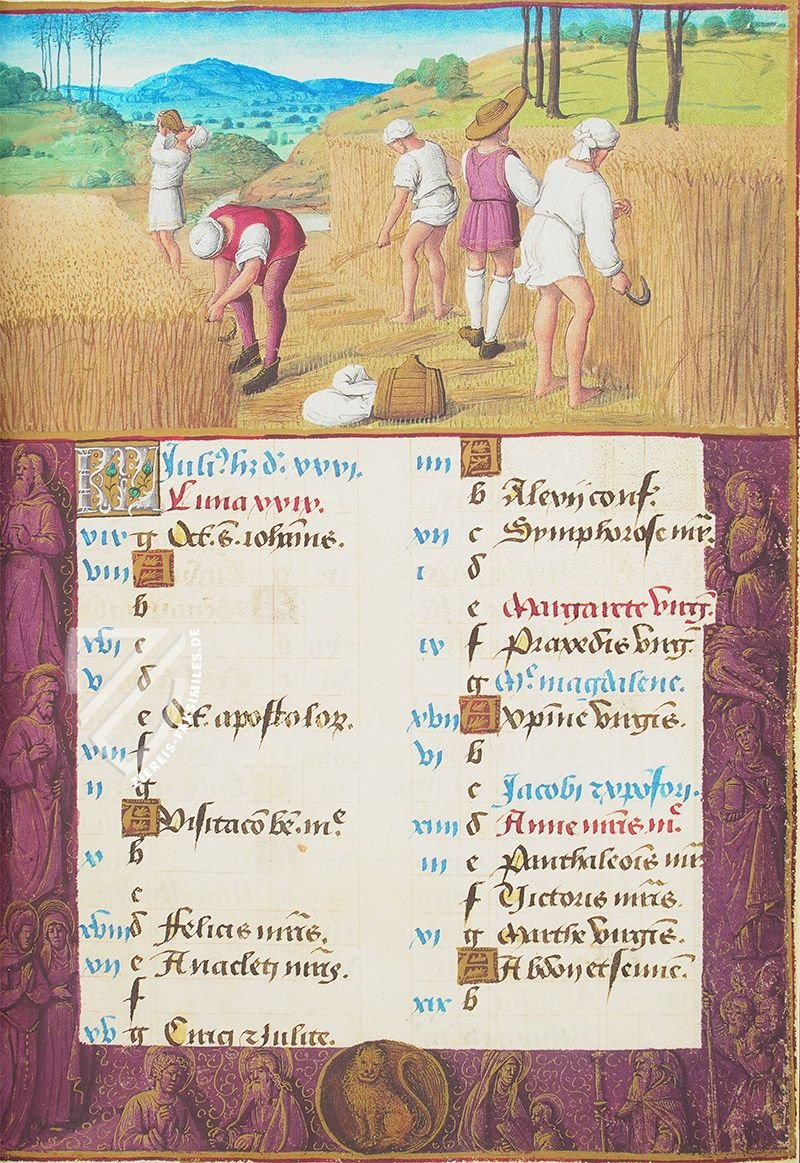 KL Juli⁹ hꝫ dˢ. xxxi.
Luna xxix.
xix g Oct. S. iohānis.
viii A
b
xvi c
v d
e Oct. apostolorꝝ.
xiii f
ii g
A Visitacō be. mᵉ
x b
c
xviii d Felicis mr̄is.
vii e Anacleti mr̄is.
f
xv g Cirici ⁊ Iulite.
iiii A
b Alexii conf.
xii c Symphorose mr̄.
i d
e Margarete virg̃.
ix f Praxedis virg̃.
g Mᵉ magdalene.
xvii A Xpine virgīs.
vi b
c Jacobi ⁊ xpofori.
xiiii d Anne mr̄is mᵉ.
iii e Panthaleoīs mr̄
f Victoris mr̄is.
xi g Marthe virgīs.
A Abdon et senne.
xix b
ZIEREIS-FACSIMILES.DE